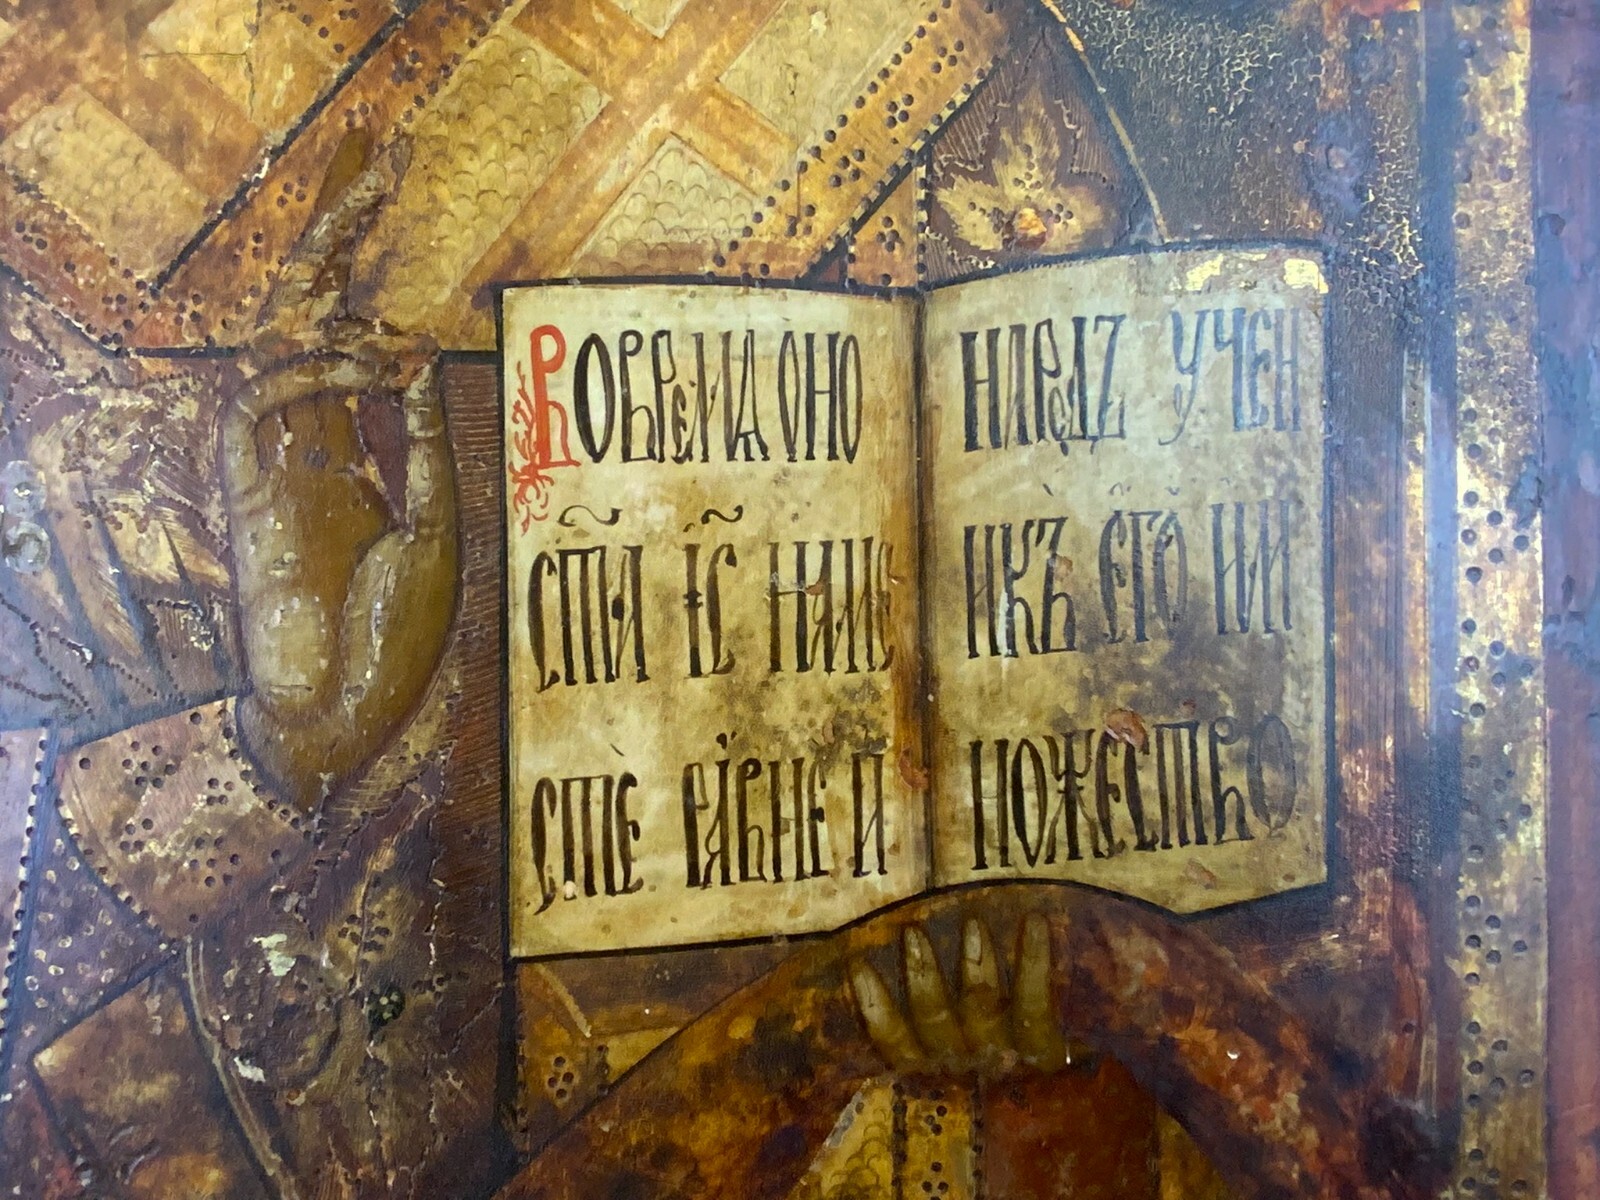 Вовремѧ оно
ст҃а і҃с наме
сте равне и
наредъ учен
икъ его им
ножество